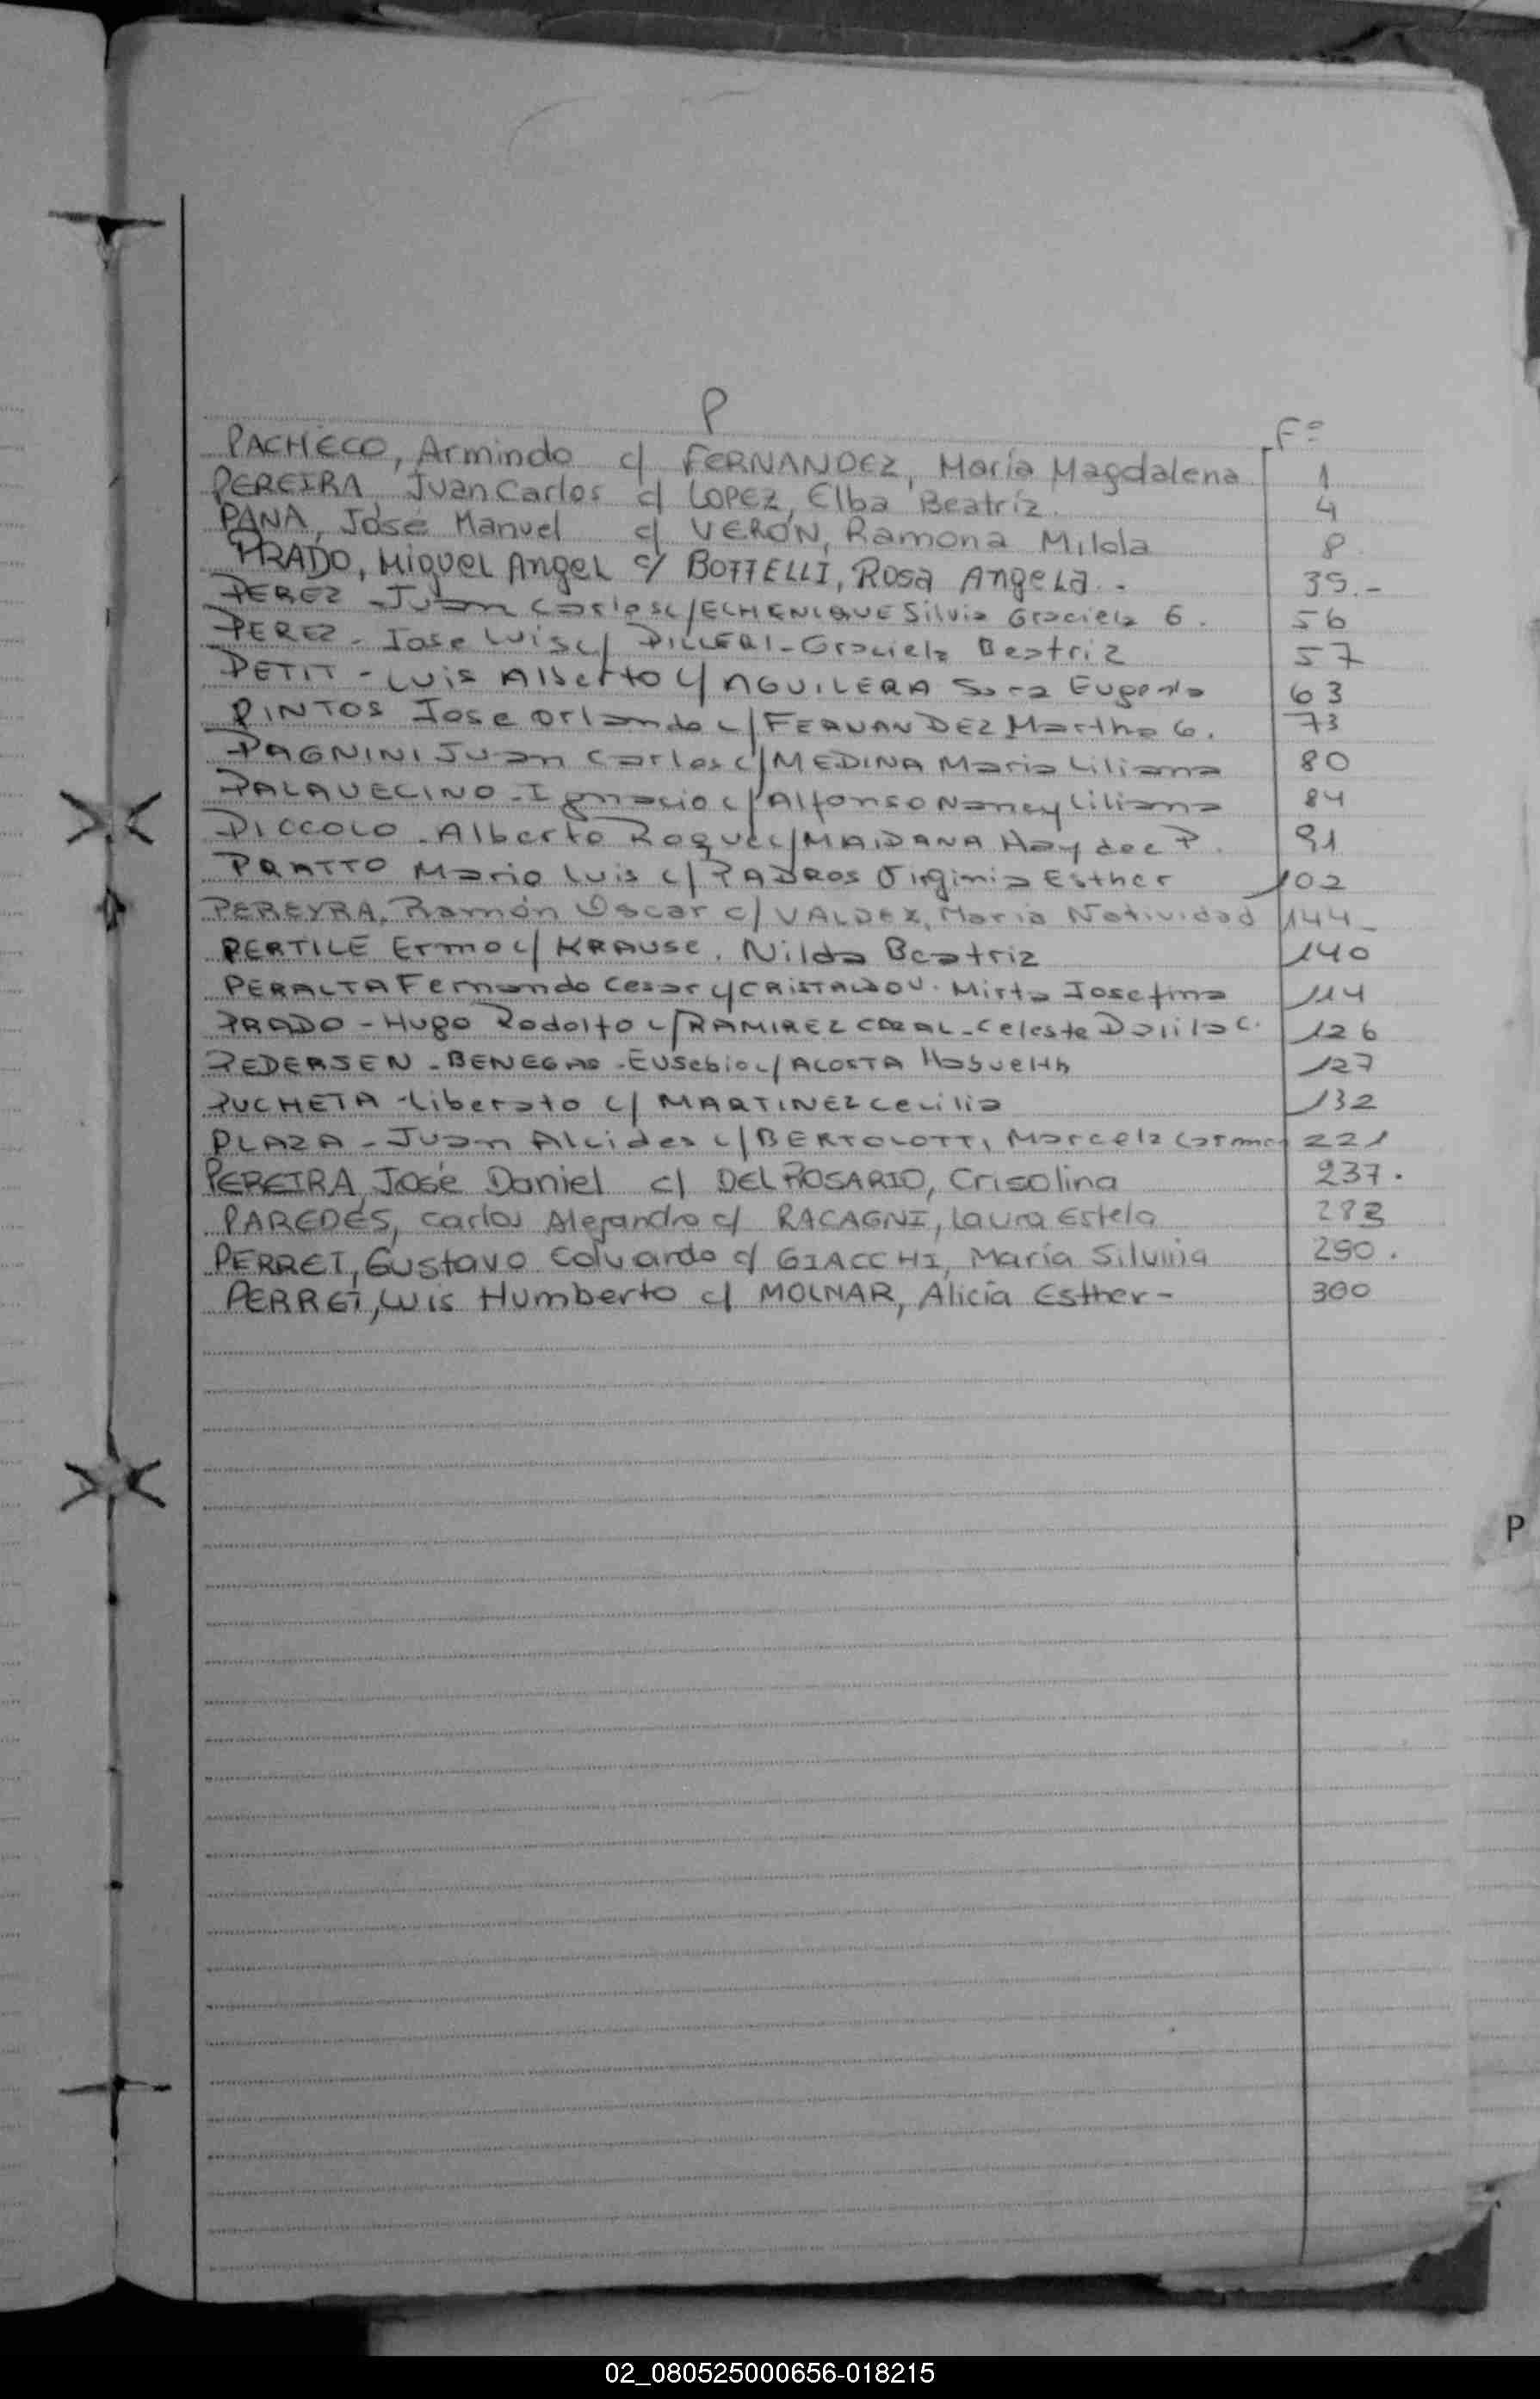 P
F°
PACHECO, Armindo c/ FERNANDEZ, María Magdalena 1
PEREIRA, Juan Carlos c/ LOPEZ, Elba Beatríz. 4
PANA, José Manuel c/ VERÓN, Ramona Milda 8
PRADO, Miguel Angel c/ BOTTELLI, Rosa Angela.- 39.-
PEREZ - Juan Carlos c/ ECHENIQUE Silvia Graciela G. 56
PEREZ - Jose Luis c/ PILLERI - Graciela Beatriz 57
PETIT - Luis Alberto c/ AGUILERA Sara Eugenia 63
PINTOS Jose Orlando c/ FERNANDEZ Martha G. 73
PAGNINI Juan Carlos c/ MEDINA Maria Liliana 80
PALAVECINO - Ignacio c/ Alfonso Nancy Liliana 84
PICCOLO - Alberto Roque c/ MAIDANA Haydee P. 91
PRATTO Mario Luis c/ PADROS Virginia Esther 102
PEREYRA, Ramón Oscar c/ VALDEZ, María Natividad 144
PERTILE Ermo c/ KRAUSE, Nilda Beatriz 140
PERALTA Fernando Cesar c/ Mirta Josefina 114
PRADO - Hugo Rodolfo c/ RAMIREZ - Celeste Dalila C. 126
PEDERSEN - BENEGAS - Eusebio c/ ACOSTA 127
PUCHETA - Liberato c/ MARTINEZ Cecilia 132
PLAZA - Juan Alcides c/ BERTOLOTTI Marcela Carmen 221
PEREIRA, José Daniel c/ DEL ROSARIO, Crisolina 237.
PAREDES, Carlos Alejandro c/ RACAGNI, Laura Estela 283
PERRET, Gustavo Eduardo c/ GIACCHI, María Silvina 290.
PERRET, Luis Humberto c/ MOLNAR, Alicia Esther - 300
P
02_080525000656-018215